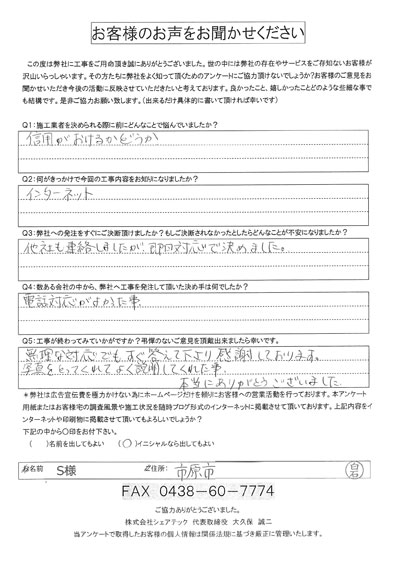 お客様のお声をお聞かせください
この度は弊社に工事をご用命頂き誠にありがとうございました。世の中には弊社の存在やサービスをご存知ないお客様が
沢山いらっしゃいます。その方たちに弊社をよく知って頂くためのアンケートにご協力頂けないでしょうか?お客様のご意見をお
聞かせいただき今後の活動に反映させていただきたいと考えております。良かったこと、嬉しかったことどのような些細な事で
も結構です。是非ご協力お願い致します。（出来るだけ具体的に書いて頂ければ幸いです）
Q1:施工業者を決められる際に前にどんなことで悩んでいましたか?
信用がおけるかどうか
Q2:何がきっかけで今回の工事内容をお知りになりましたか?
インターネット
Q3:弊社への発注をすぐにご決断頂けましたか?もしご決断されなかったとしたらどんなことが不安になりましたか?
他社も連絡しましたが、即日対応で決めました。
Q4:数ある会社の中から、弊社へ工事を発注して頂いた決め手は何でしたか?
電話対応がよかた事
Q5:工事が終わってみていかがですか?弔慰のないご意見を頂戴出来ましたら幸いです。
無理な対応でもすぐ答えて下より感謝しております。
写真をとってくれてよく説明してくれた事。
本当にありがとうございました
*弊社は広告宣伝費を極力かけない為にホームページだけを頼りにお客様への営業活動を行っております。本アンケート
用紙またはお客様宅の調査風景や施工状況を随時ブログ形式のインターネットに掲載させて頂いております。上記内容をイ
ンターネットや印刷物に掲載させて頂いてもよろしいでしょうか?
下記の中から〇印をお付下さい。
( )名前を出してもよい (〇)イニシャルなら出してもよい
お名前 S様 ご住所: 市原市
FAX 0438-60-7774
ご協力ありがとうございました。
株式会社シェアテック 代表取締役 大久保 誠二
当アンケートで取得したお客様の個人情報は関係法規に基づき厳正に管理いたします。